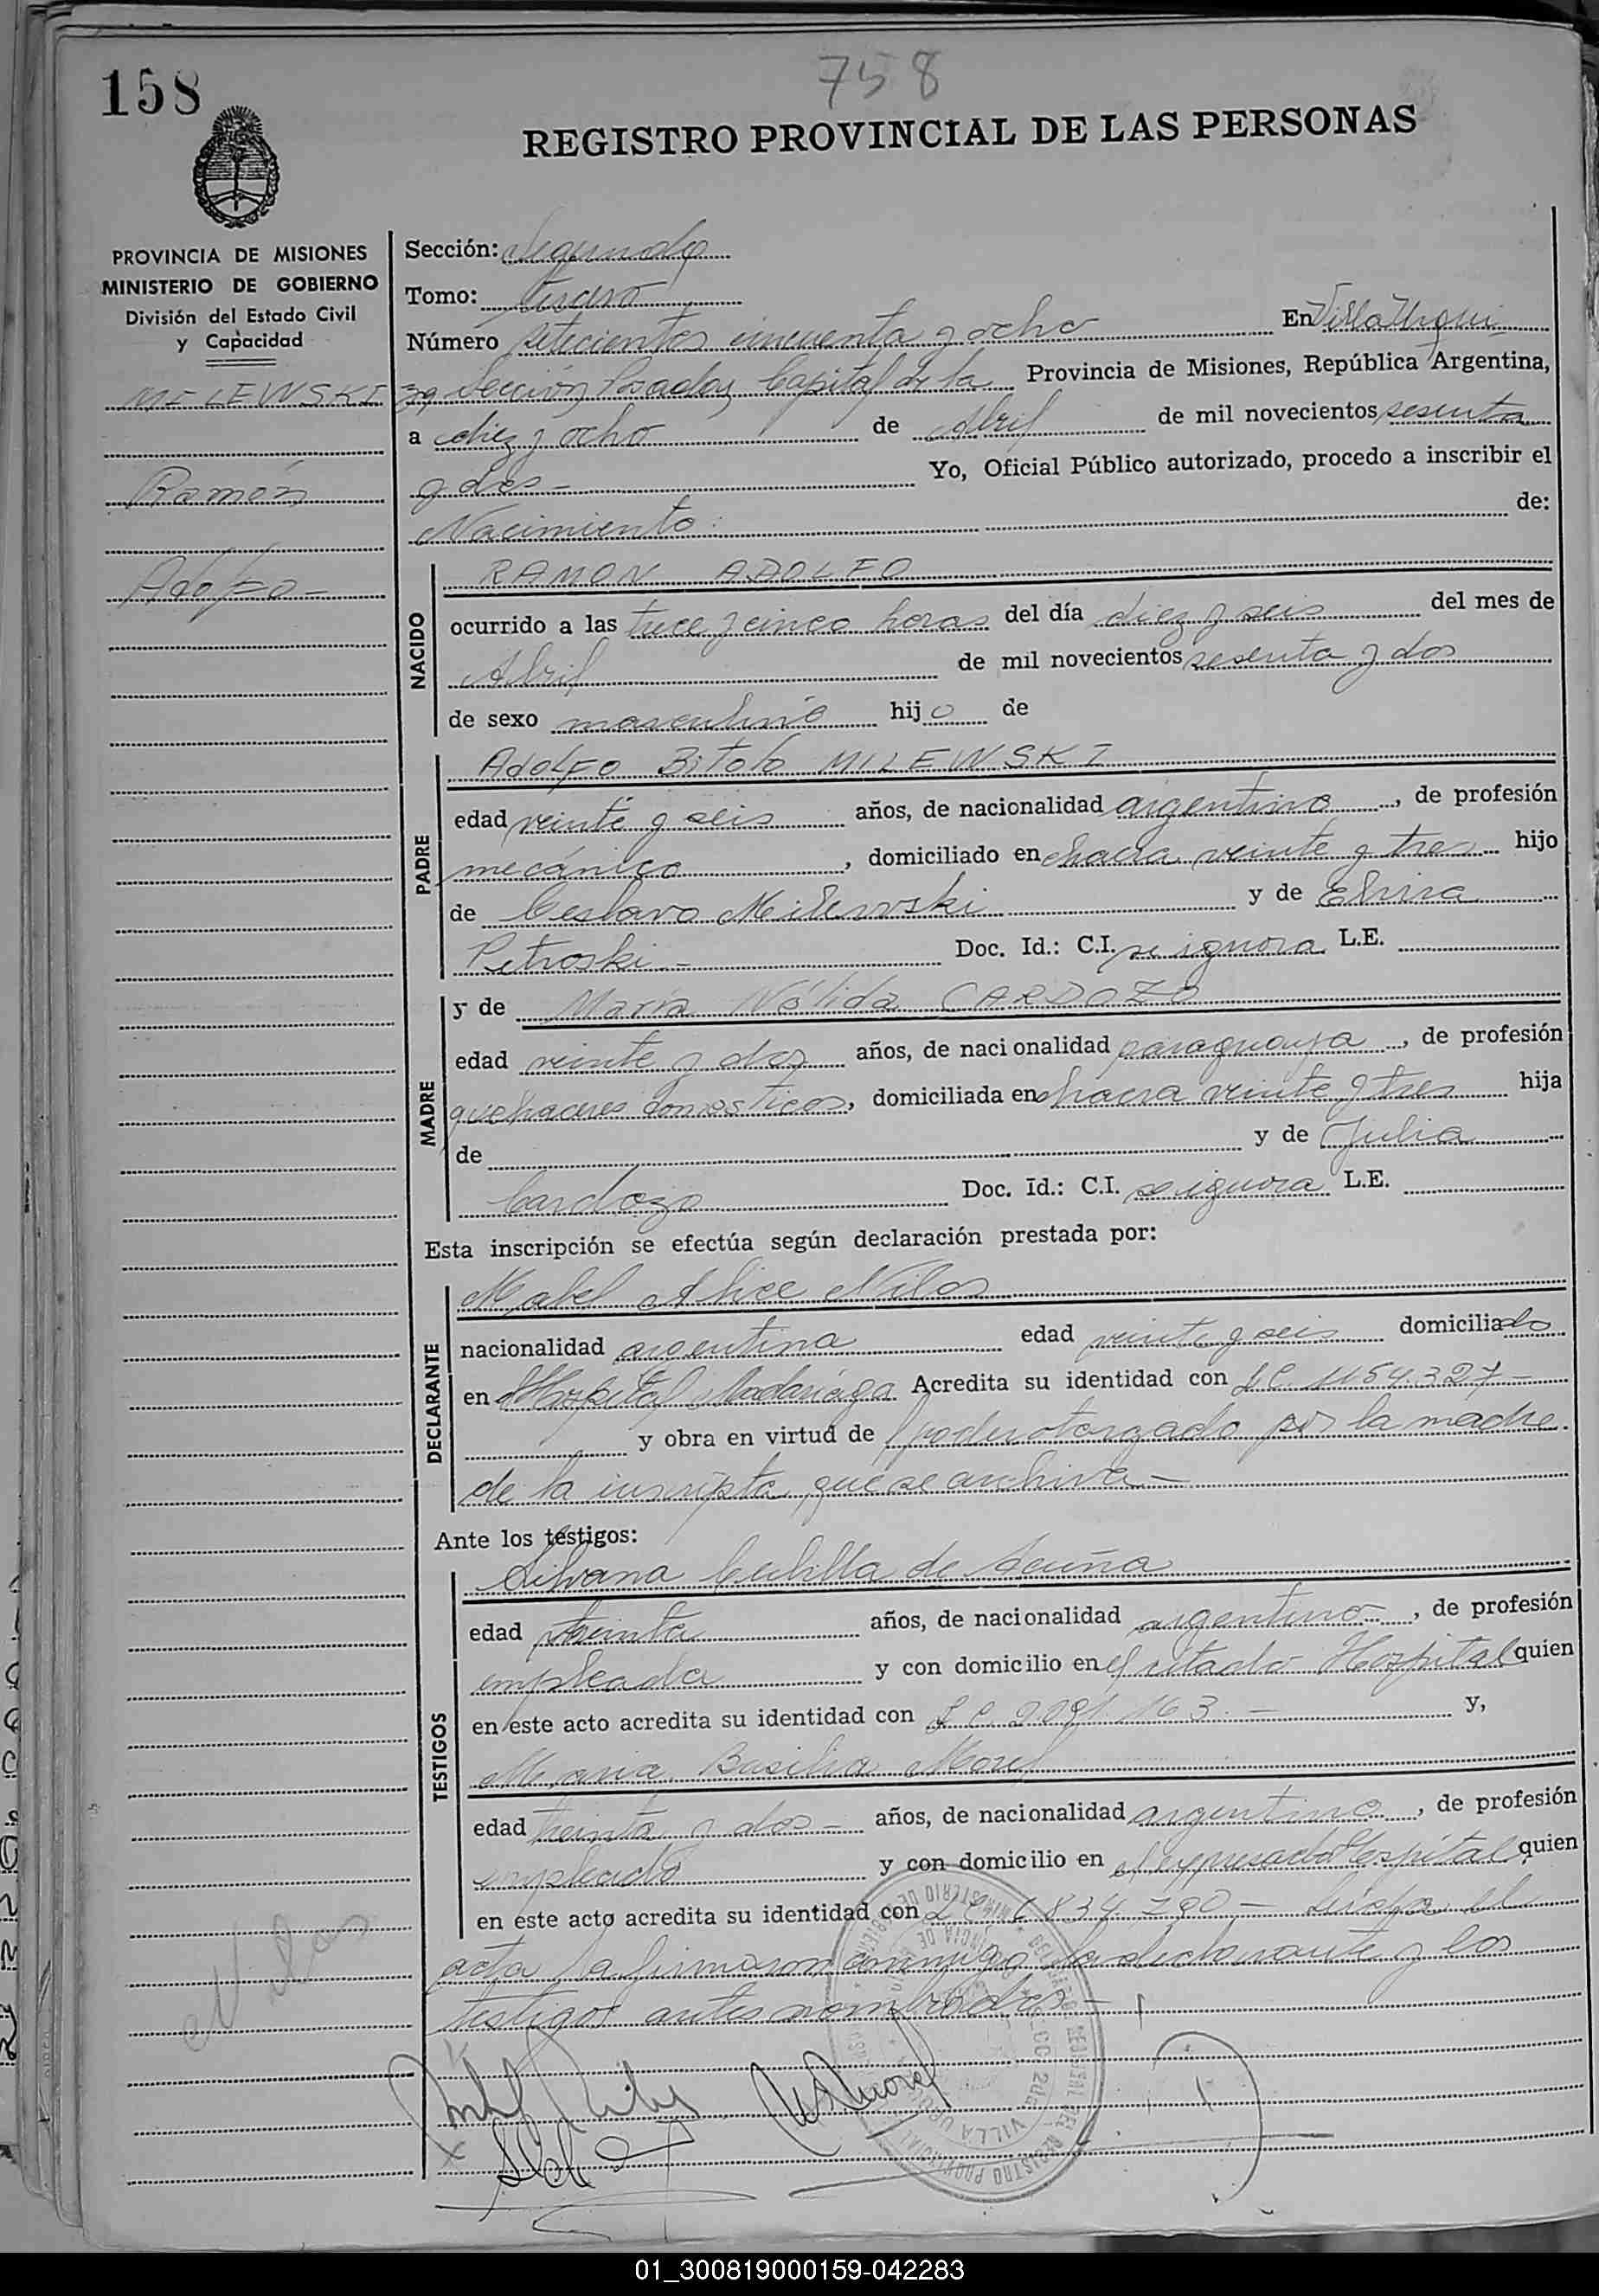 158
758
REGISTRO PROVINCIAL DE LAS PERSONAS
PROVINCIA DE MISIONES
MINISTERIO DE GOBIERNO
División del Estado Civil
y Capacidad
MILEWSKI
Ramón
Adolfo -
Nilos
Sección: Segunda
Tomo: tercero
Número setecientos cincuenta y ocho En Villa Urqui
za Sección Posadas Capital de la Provincia de Misiones, República Argentina,
a diez y ocho de Abril de mil novecientos sesenta
y dos - Yo, Oficial Público autorizado, procedo a inscribir el
Nacimiento: de:
NACIDO
RAMON ADOLFO
ocurrido a las trece y cinco horas del día diez y seis del mes de
Abril de mil novecientos sesenta y dos
de sexo masculino hijo de
PADRE
Adolfo Bitolo MILEWSKI
edad veinte y seis años, de nacionalidad argentino, de profesión
mecánico, domiciliado en chacra veinte y tres hijo
de Ceslavo Milewski y de Elvira
Petroski - Doc. Id.: C.I. se ignora L.E.
MADRE
y de María Nélida CARDOZO
edad veinte y dos años, de nacionalidad paraguaya, de profesión
quehaceres domesticos, domiciliada en chacra veinte y tres hija
de y de Julia
Cardozo Doc. Id.: C.I. se ignora L.E.
Esta inscripción se efectúa según declaración prestada por:
DECLARANTE
Mabel Alice Nilos
nacionalidad argentina edad veinte y seis domiciliado
en Hospital Madariaga Acredita su identidad con L.C. 1154.327 -
y obra en virtud de poder otorgado por la madre
de la inscripta, que se archiva -
Ante los testigos:
TESTIGOS
Silvana Cubilla de Acuña
edad treinta años, de nacionalidad argentino, de profesión
empleada y con domicilio en el citado Hospital quien
en este acto acredita su identidad con L.C. 2.091.163 - y,
Maria Basilia Morel
edad treinta y dos - años, de nacionalidad argentino, de profesión
empleado y con domicilio en el expresado Hospital quien
en este acto acredita su identidad con L.C. 6834.790 - Leída el
acta la firmaron conmigo la declarante y los
testigos antes nombrados -
01_300819000159-042283